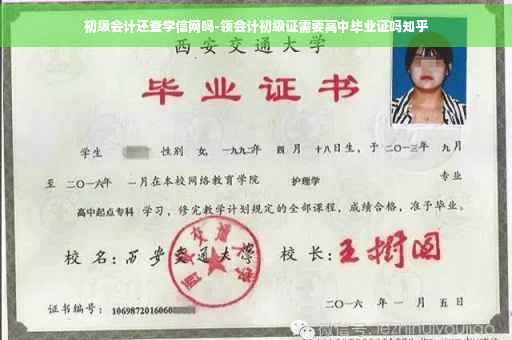 初级会计还查学信网吗-领会计初级证需要高中毕业证吗知乎
西安交通大学
毕业证书
学生 性别 女, 一九九二年 四月 十八日生, 于二〇一三年 九月
至 二〇一六年 一月在本校网络教育学院 护理学 专业
高中起点专科 学习, 修完教学计划规定的全部课程, 成绩合格, 准予毕业。
校 名: 西安交通大学 校 长: 王树国
西安交通大学
证书编号: 1069872016060
二〇一六 年 一 月 五 日
微信号: lezhihuiyoujiao